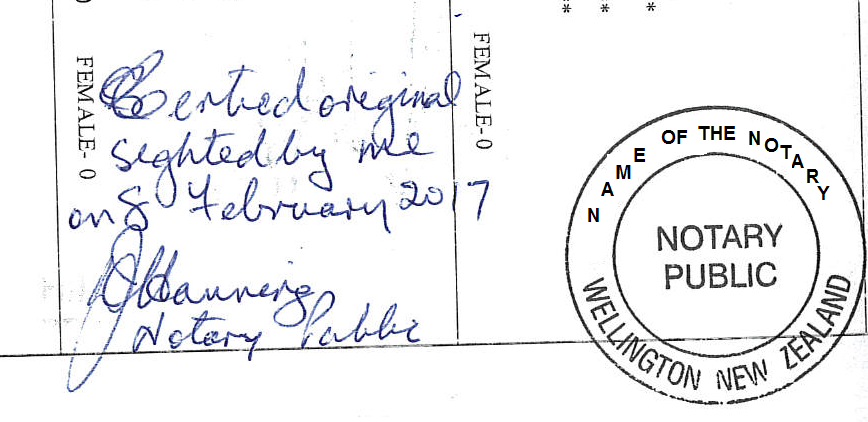 FEMALE- 0
FEMALE-0
* * *
* * *
Certied original
sighted by me
on 8 February 2017
Notary Public
NAME OF THE NOTARY
NOTARY
PUBLIC
WELLINGTON NEW ZEALAND